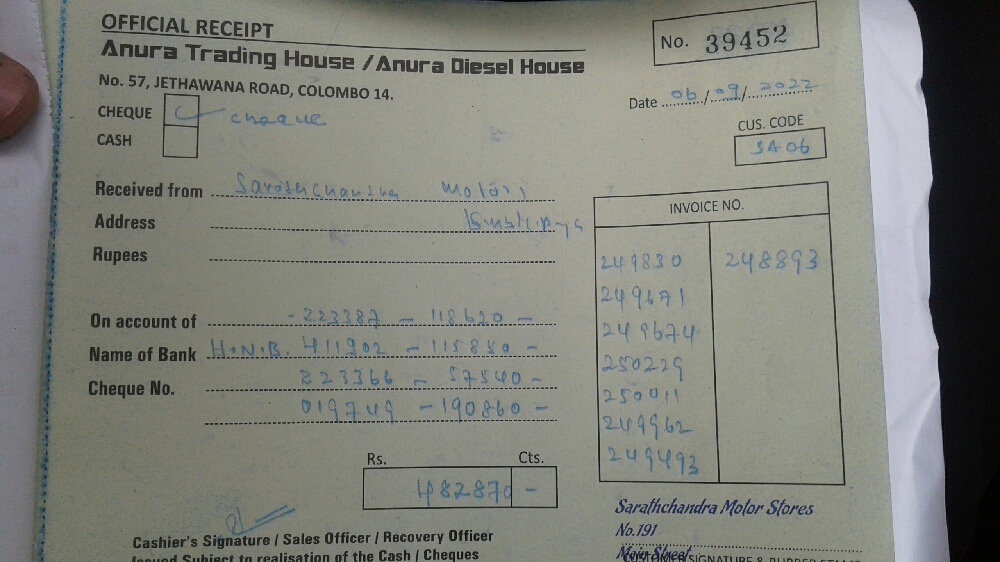 OFFICIAL RECEIPT
No. 39452
Anura Trading House / Anura Diesel House
No. 57, JETHAWANA ROAD, COLOMBO 14.
Date 06/09/2022
CHEQUE cheque
CASH
CUS. CODE
SA06
Received from Sarathchandra Motors
Address
Rupees
INVOICE NO.
249830 248893
249671
249674
250229
250011
249962
249493
On account of - 223387 - 118620 -
Name of Bank H.N.B. 411902 - 115850 -
Cheque No. 223366 - 57540 -
019749 - 190860 -
Rs. Cts.
482870 -
Sarathchandra Motor Stores
No.191
Main Street
Cashier's Signature / Sales Officer / Recovery Officer
Issued Subject to realisation of the Cash / Cheques
CUSTOMER SIGNATURE & RUBBER STAMP